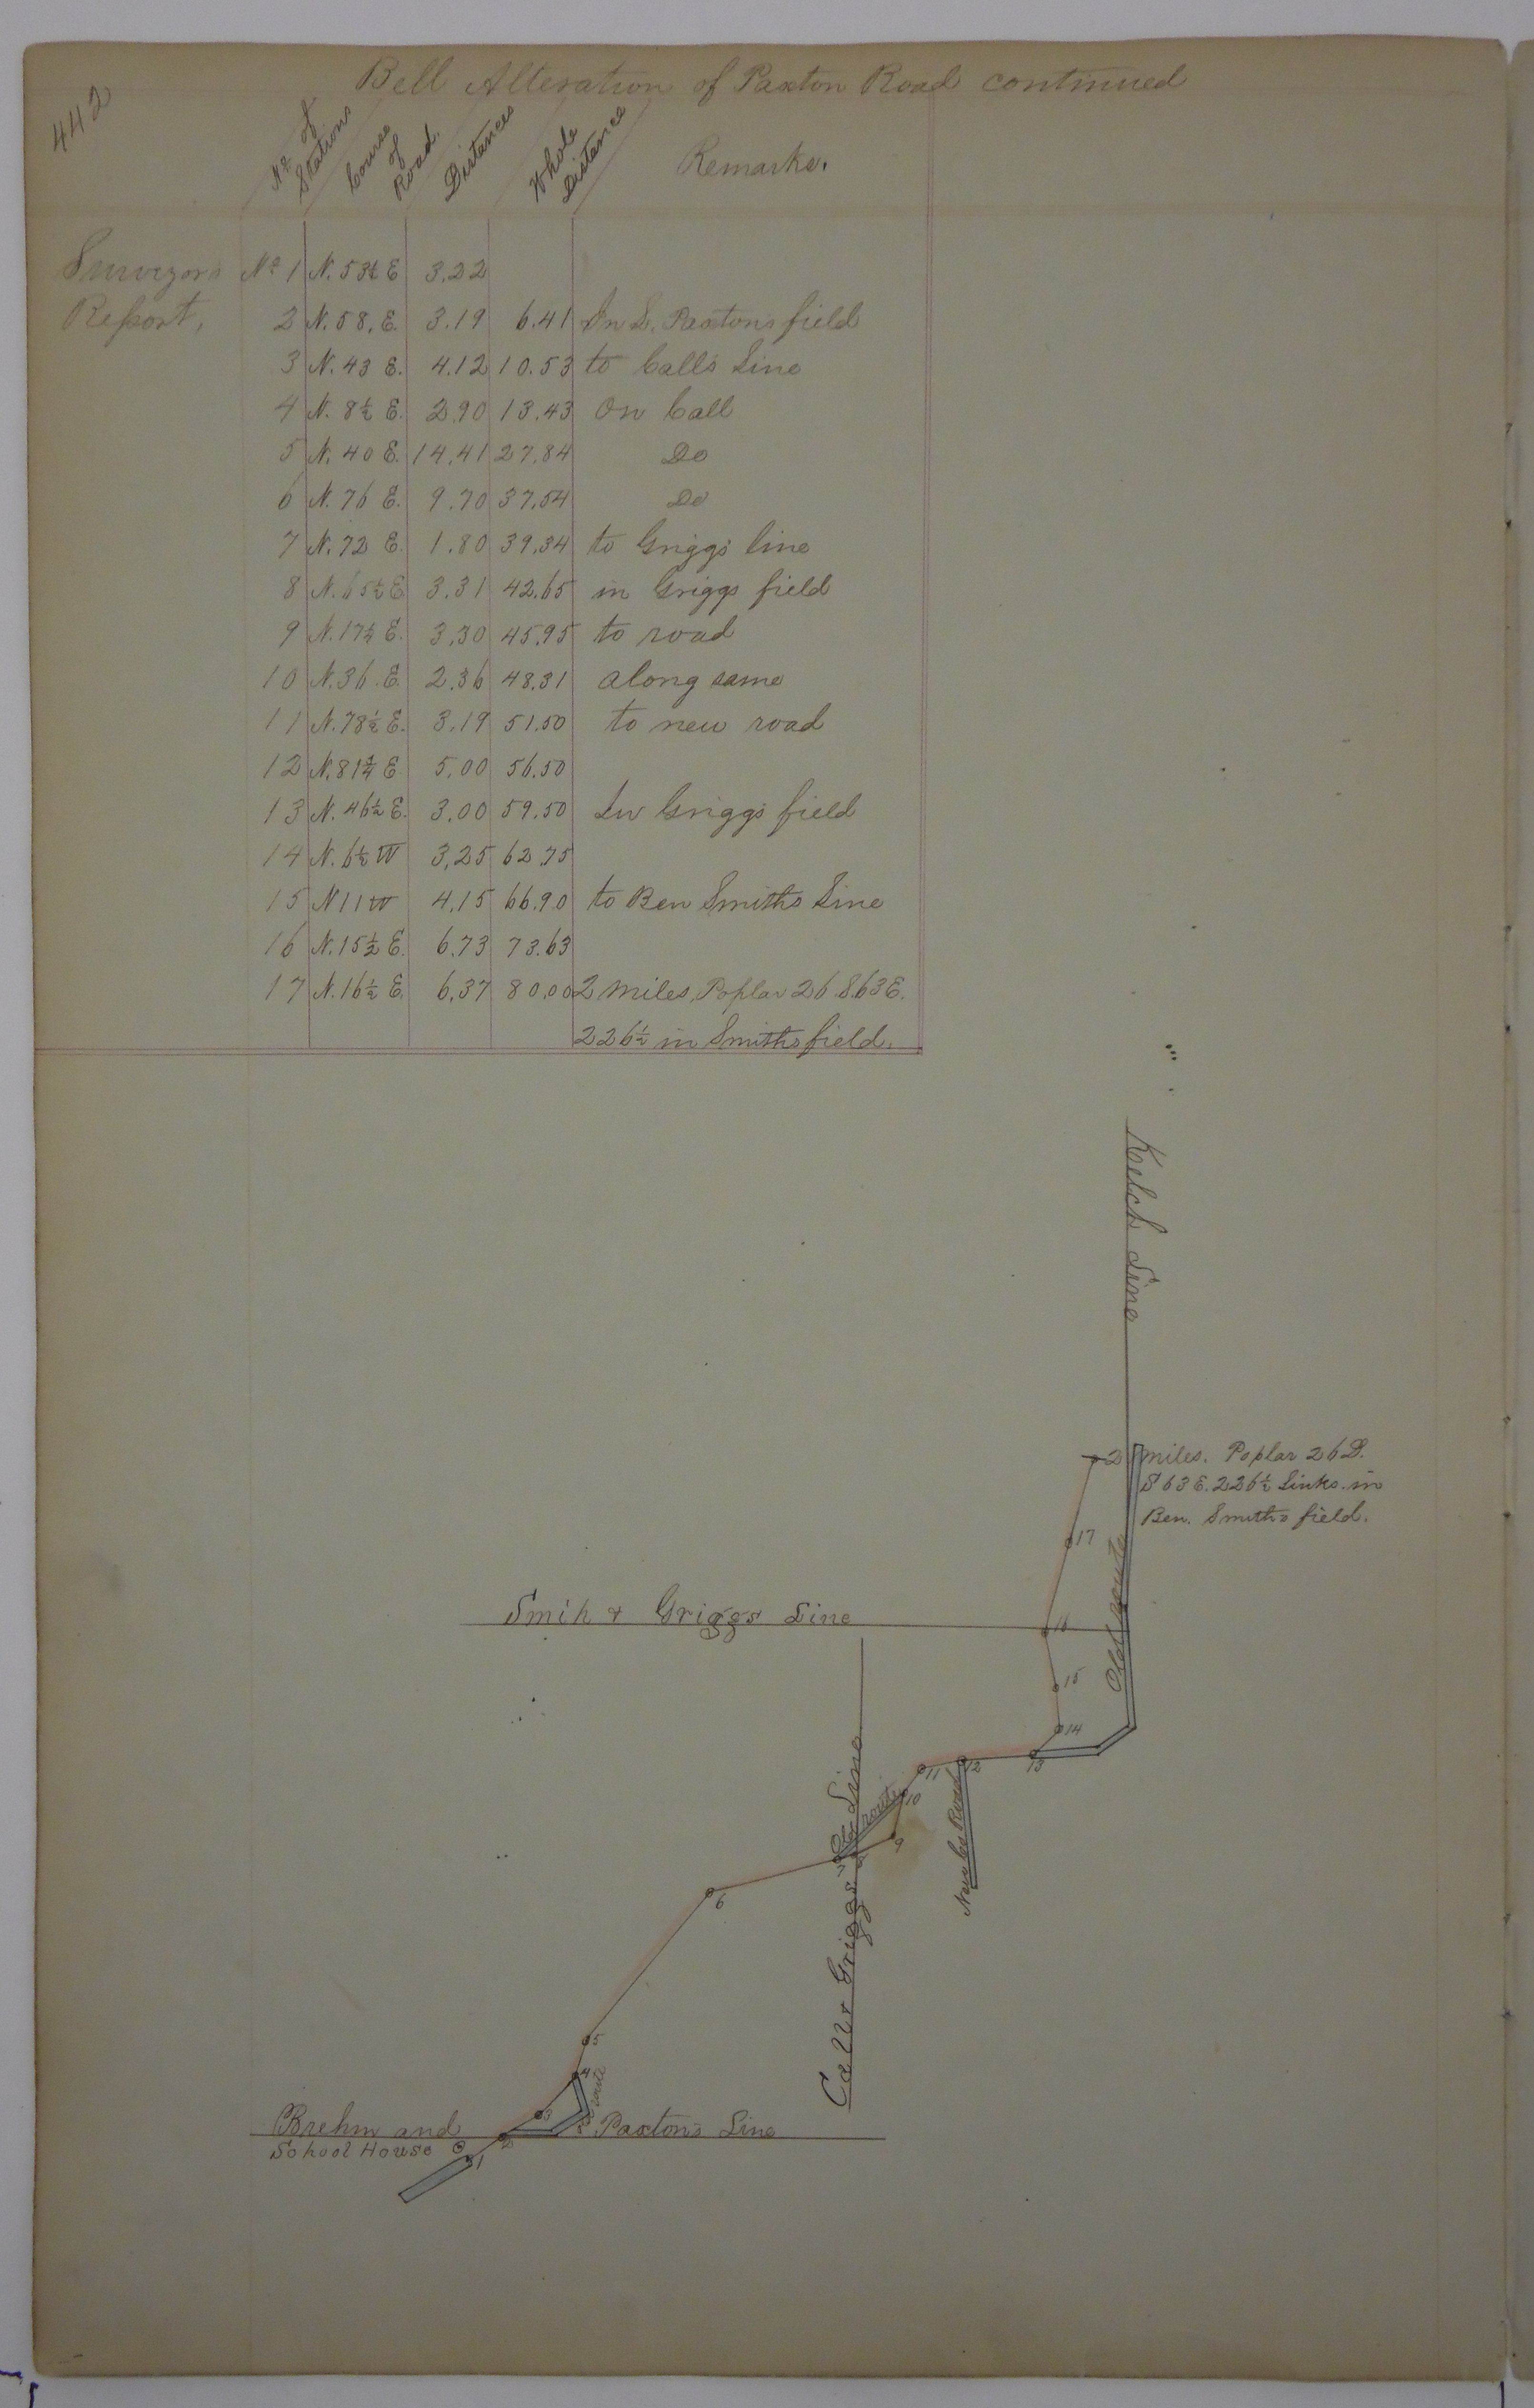 442
Bell Alteration of Paxton Road continued
No. of Stations Course of Road. Distances Whole Distance Remarks.
Surveyors Report,
No 1 N. 53½ E 3.22
2 N. 58. E. 3.19 6.41 In S. Paxtons field
3 N. 43 E. 4.12 10.53 to Calls Line
4 N. 8½ E. 2.90 13.43 On Call
5 N. 40 E. 14.41 27.84 Do
6 N. 76 E. 9.70 37.54 Do
7 N. 72 E. 1.80 39.34 to Griggs line
8 N. 65½ E 3.31 42.65 in Griggs field
9 N. 17½ E. 3.30 45.95 to road
10 N. 36. E. 2.36 48.31 along same
11 N. 78½ E. 3.19 51.50 to new road
12 N. 81¾ E 5.00 56.50
13 N. 46½ E. 3.00 59.50 In Griggs field
14 N. 6½ W 3.25 62.75
15 N 11 W 4.15 66.90 to Ben Smiths Line
16 N. 15½ E. 6.73 73.63
17 N. 16½ E. 6.37 80.00 2 miles, Poplar 26 S. 63 E.
226½ in Smiths field.
Kelch Line
2 miles. Poplar 26 D.
S 63 E. 226½ Links. in
Ben. Smiths field.
17
Old route
Smih & Griggs Line
16
15
14
13
12
11
10
9
8
7
Old route
New Co Road
Call & Griggs Line
6
5
4
route
3
Brehm and
2
Paxtons Line
School House
1